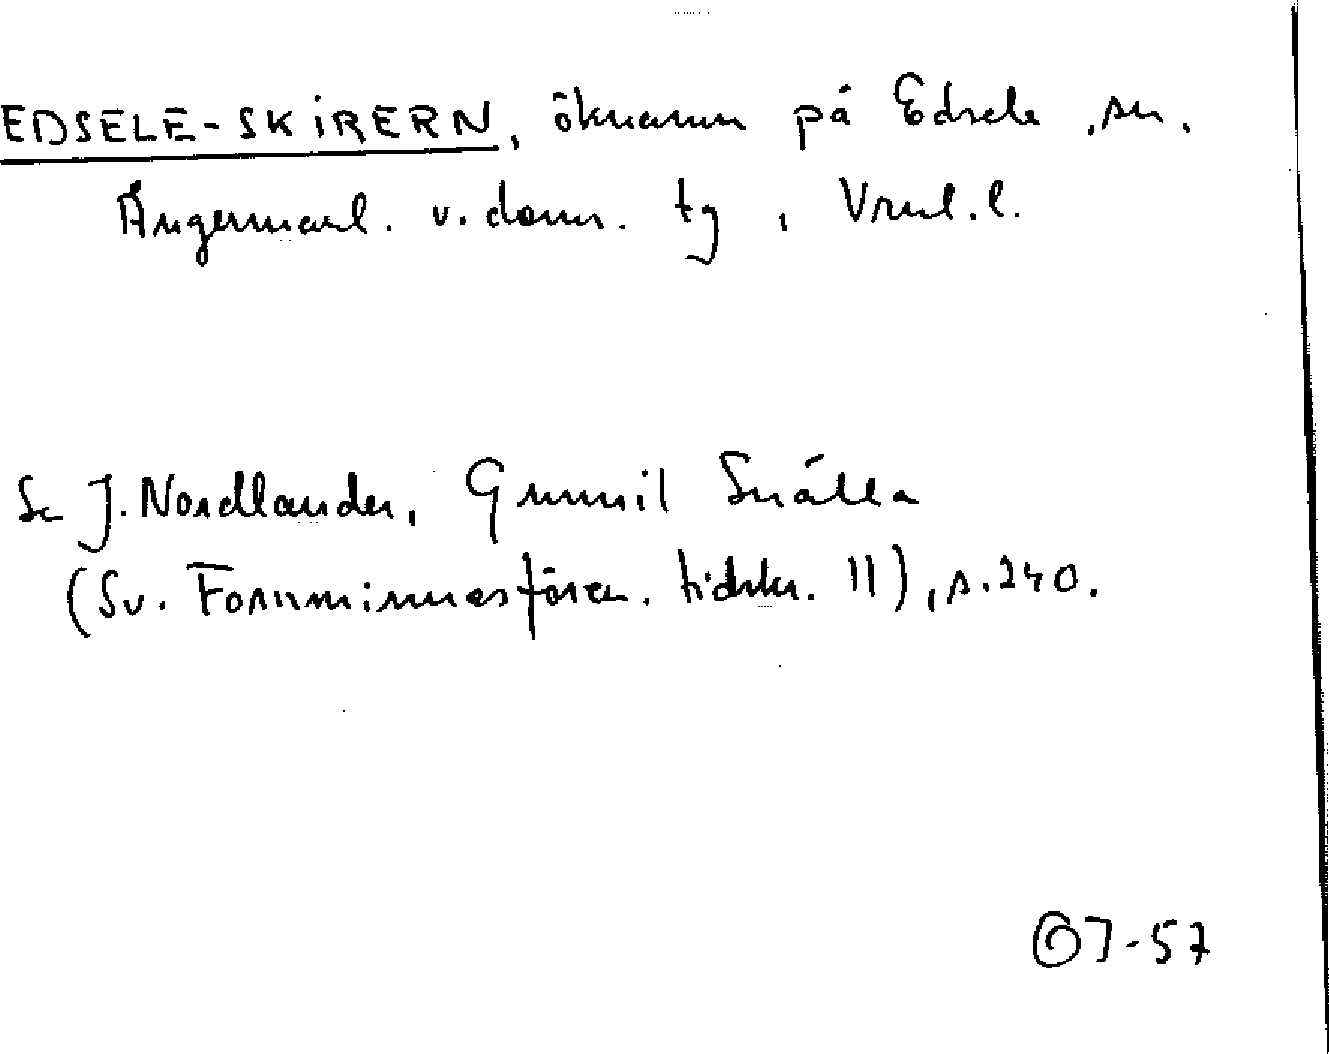 EDSELE-SKIRERN, öknamn på Edsele, sn.
Ångermanl. v. doms. tg, Vrnl. l.
Se J. Nordlander, Gunnil Snälla
(Sv. Fornminnesfören. tidskr. 11), s. 240.
OJ-57